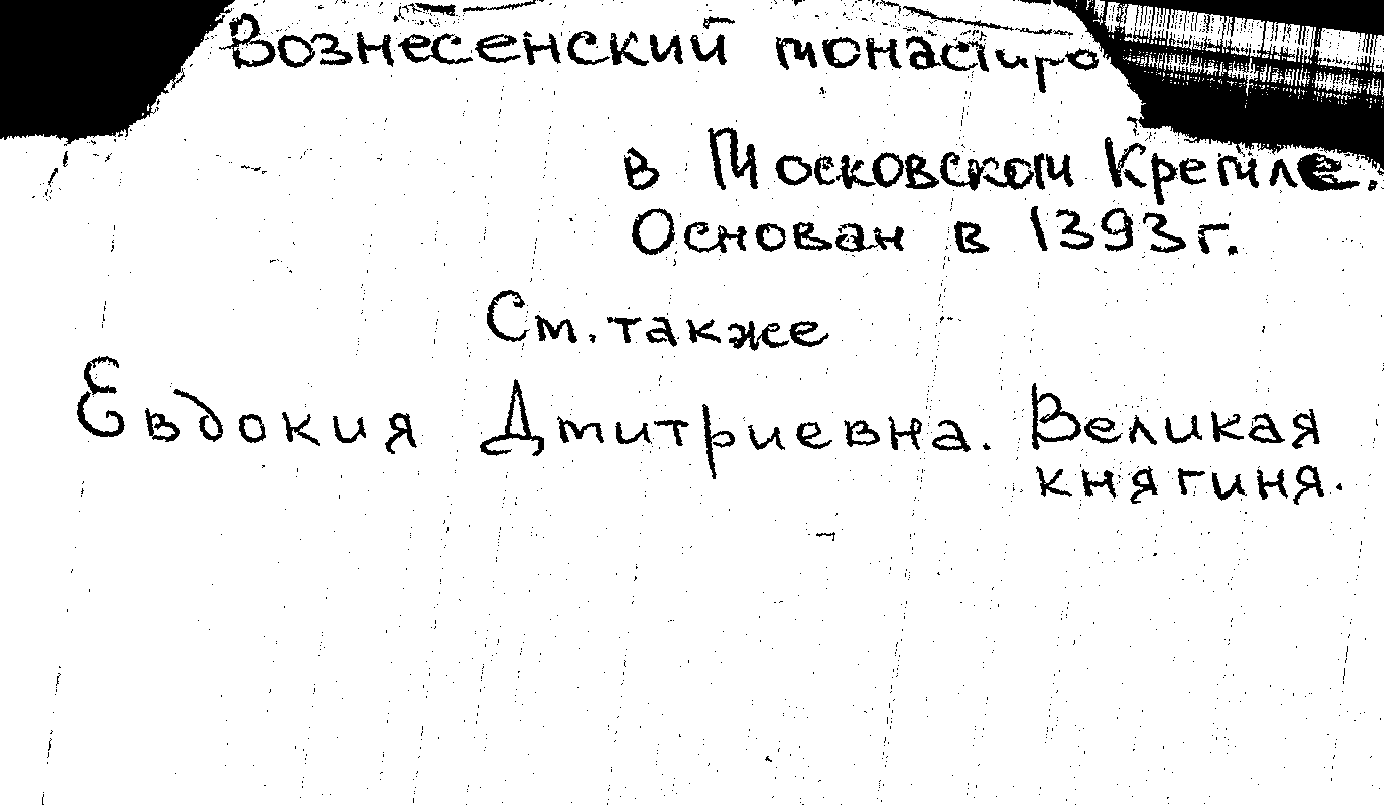 Вознесенский монастырь
в Московском Кремле.
Основан в 1393г.
См. также
Евдокия Дмитриевна. Великая
княгиня.